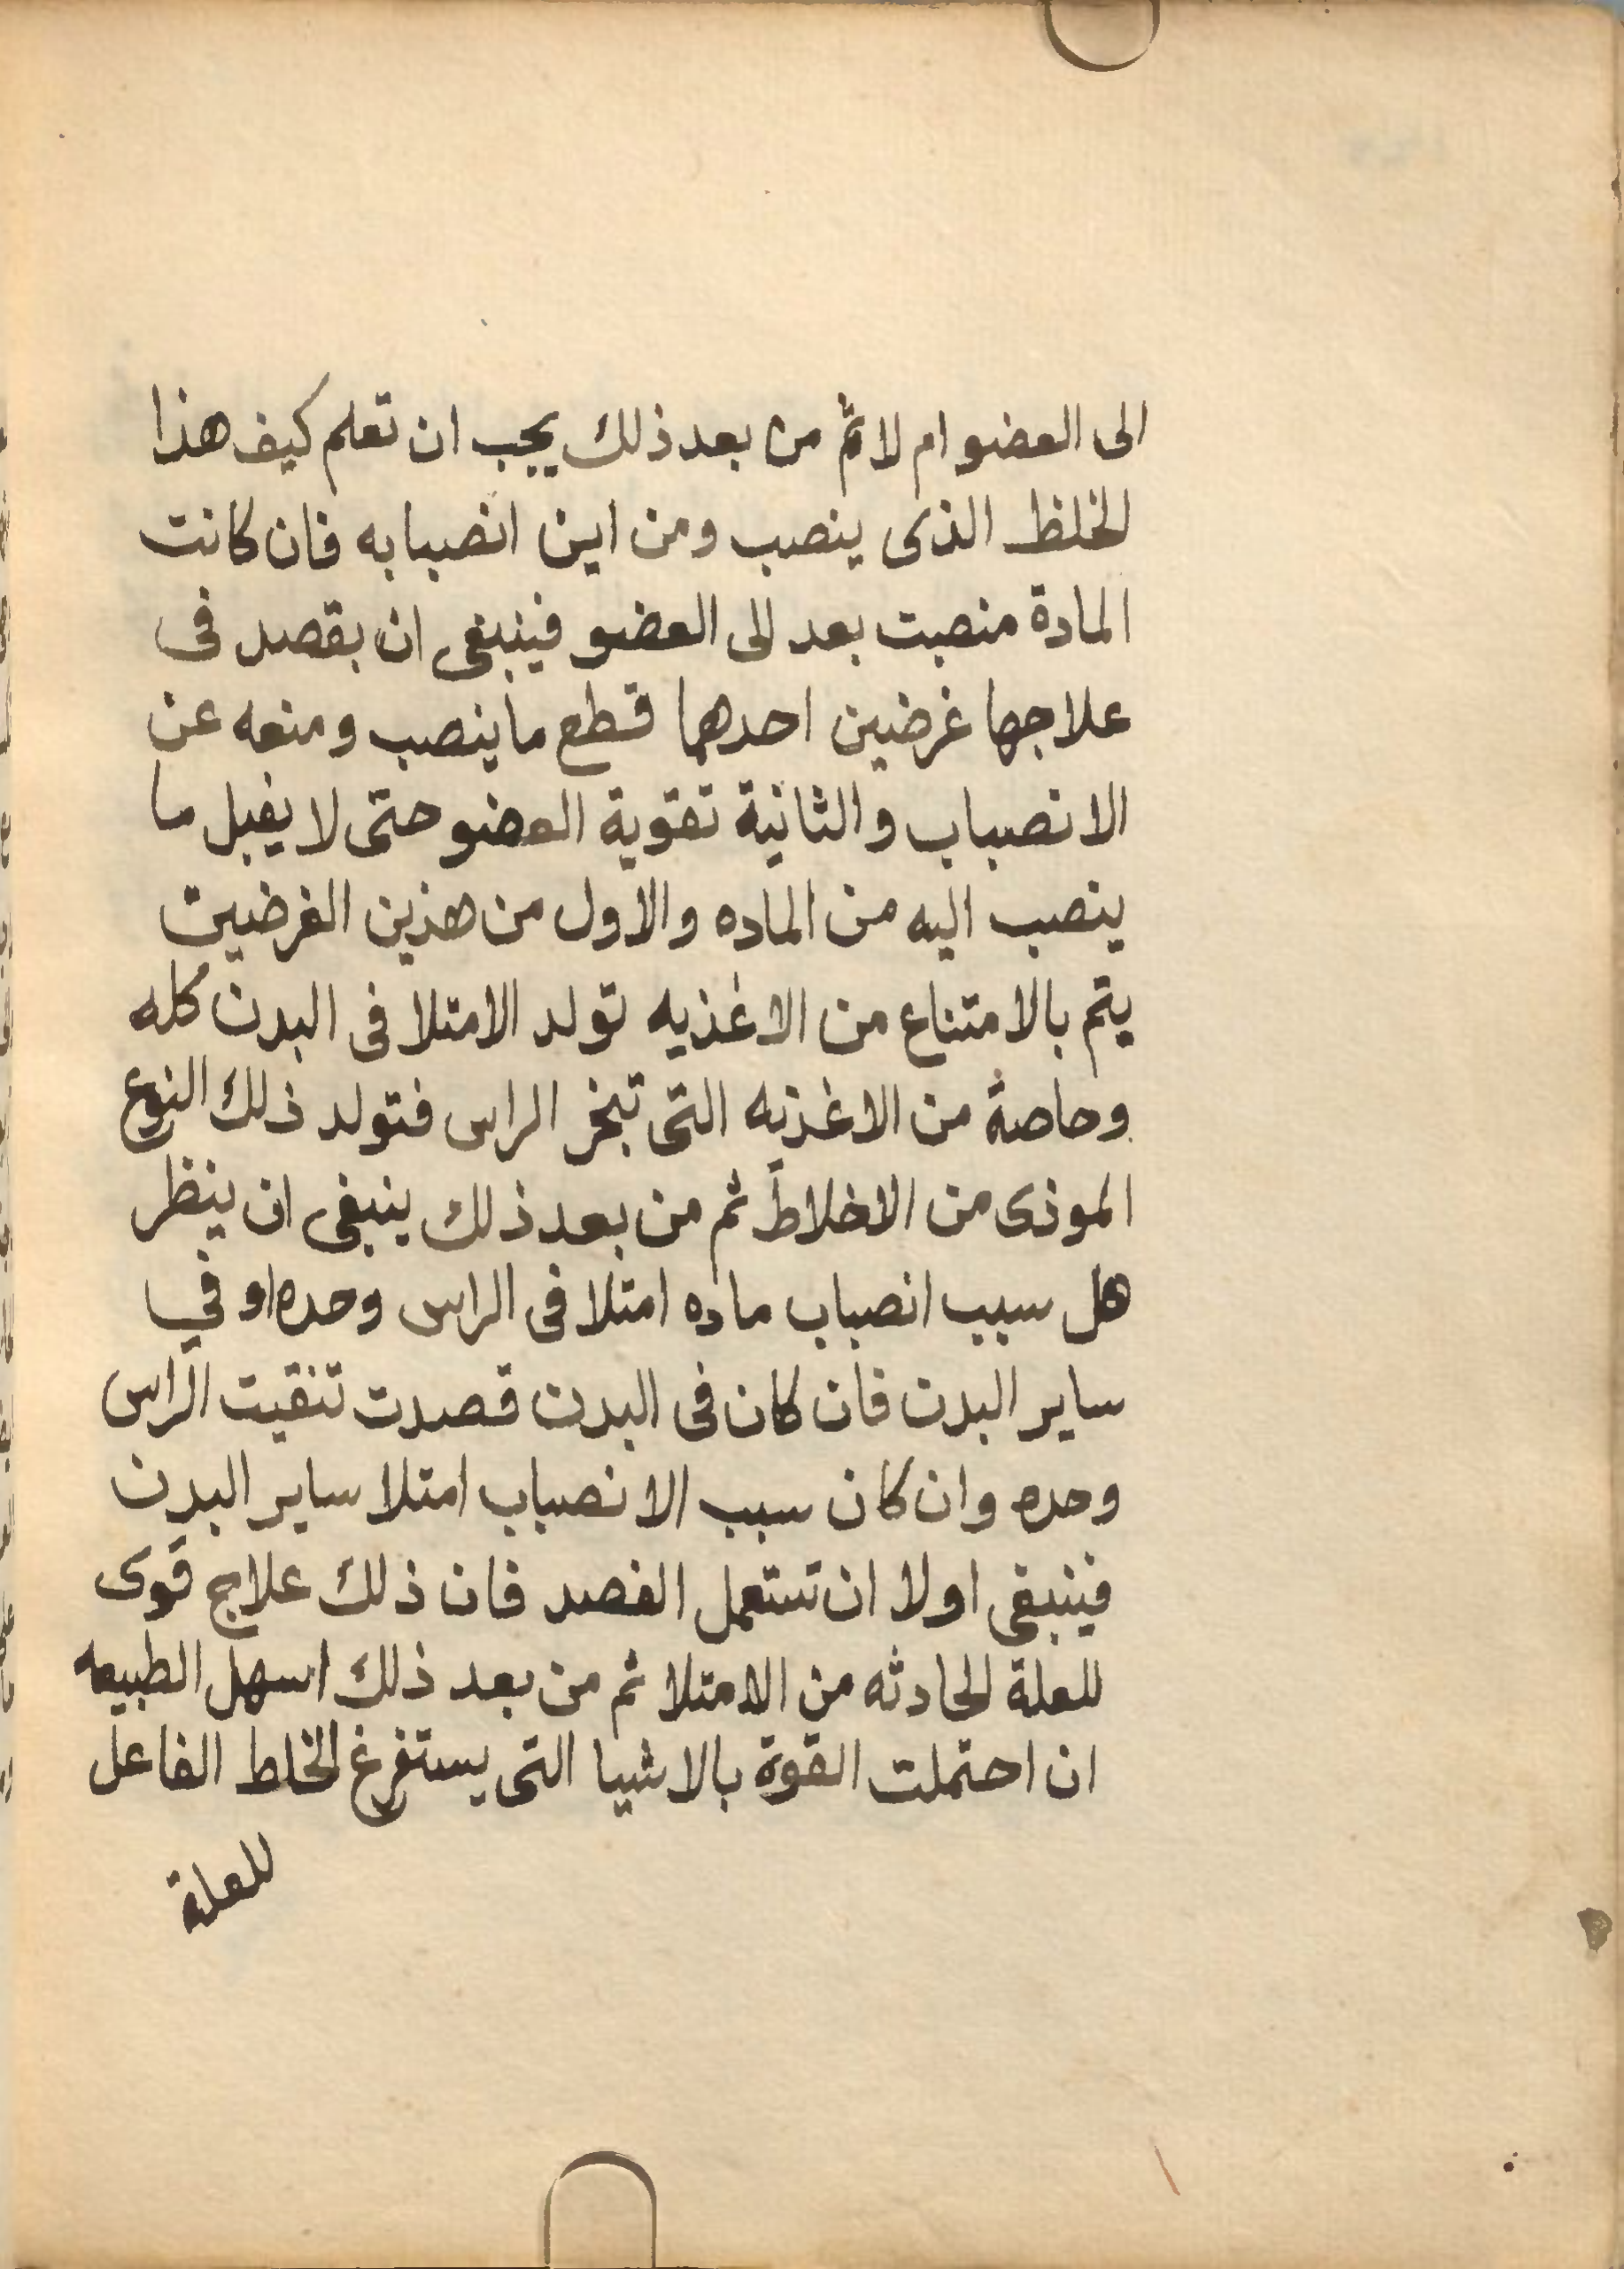 الى العضو ام لا ثم من بعد ذلك يجب ان تعلم كيف هذا
الخلظ الذى ينصب ومن اين انصبابه فان كانت
المادة منصبت بعد الى العضو فينبغى ان بقصد فى
علاجها غرضين احدهما قطع ما ينصب ومنعه عن
الانصباب والثانية تقوية العضو حتى لا يقبل ما
ينصب اليه من الماده والاول من هذين الغرضين
يتم بالامتناع من الاغذيه تولد الامتلا فى البدن كله
وخاصة من الاغذيه التى تبخر الراس فتولد ذلك النوع
الموذى من الاخلاط ثم من بعد ذلك ينبغى ان ينظر
هل سبب انصباب ماده امتلا فى الراس وحده او في
ساير البدن فان كان فى البدن قصدت تنقيت الراس
وحده وان كان سبب الانصباب امتلا ساير البدن
فينبغى اولا ان تستعمل الفصد فان ذلك علاج قوى
للعلة الحادثه من الامتلا ثم من بعد ذلك اسهل الطبيعه
ان احتملت القوة بالاشيا التى يستفرغ الخلط الفاعل
للعلة